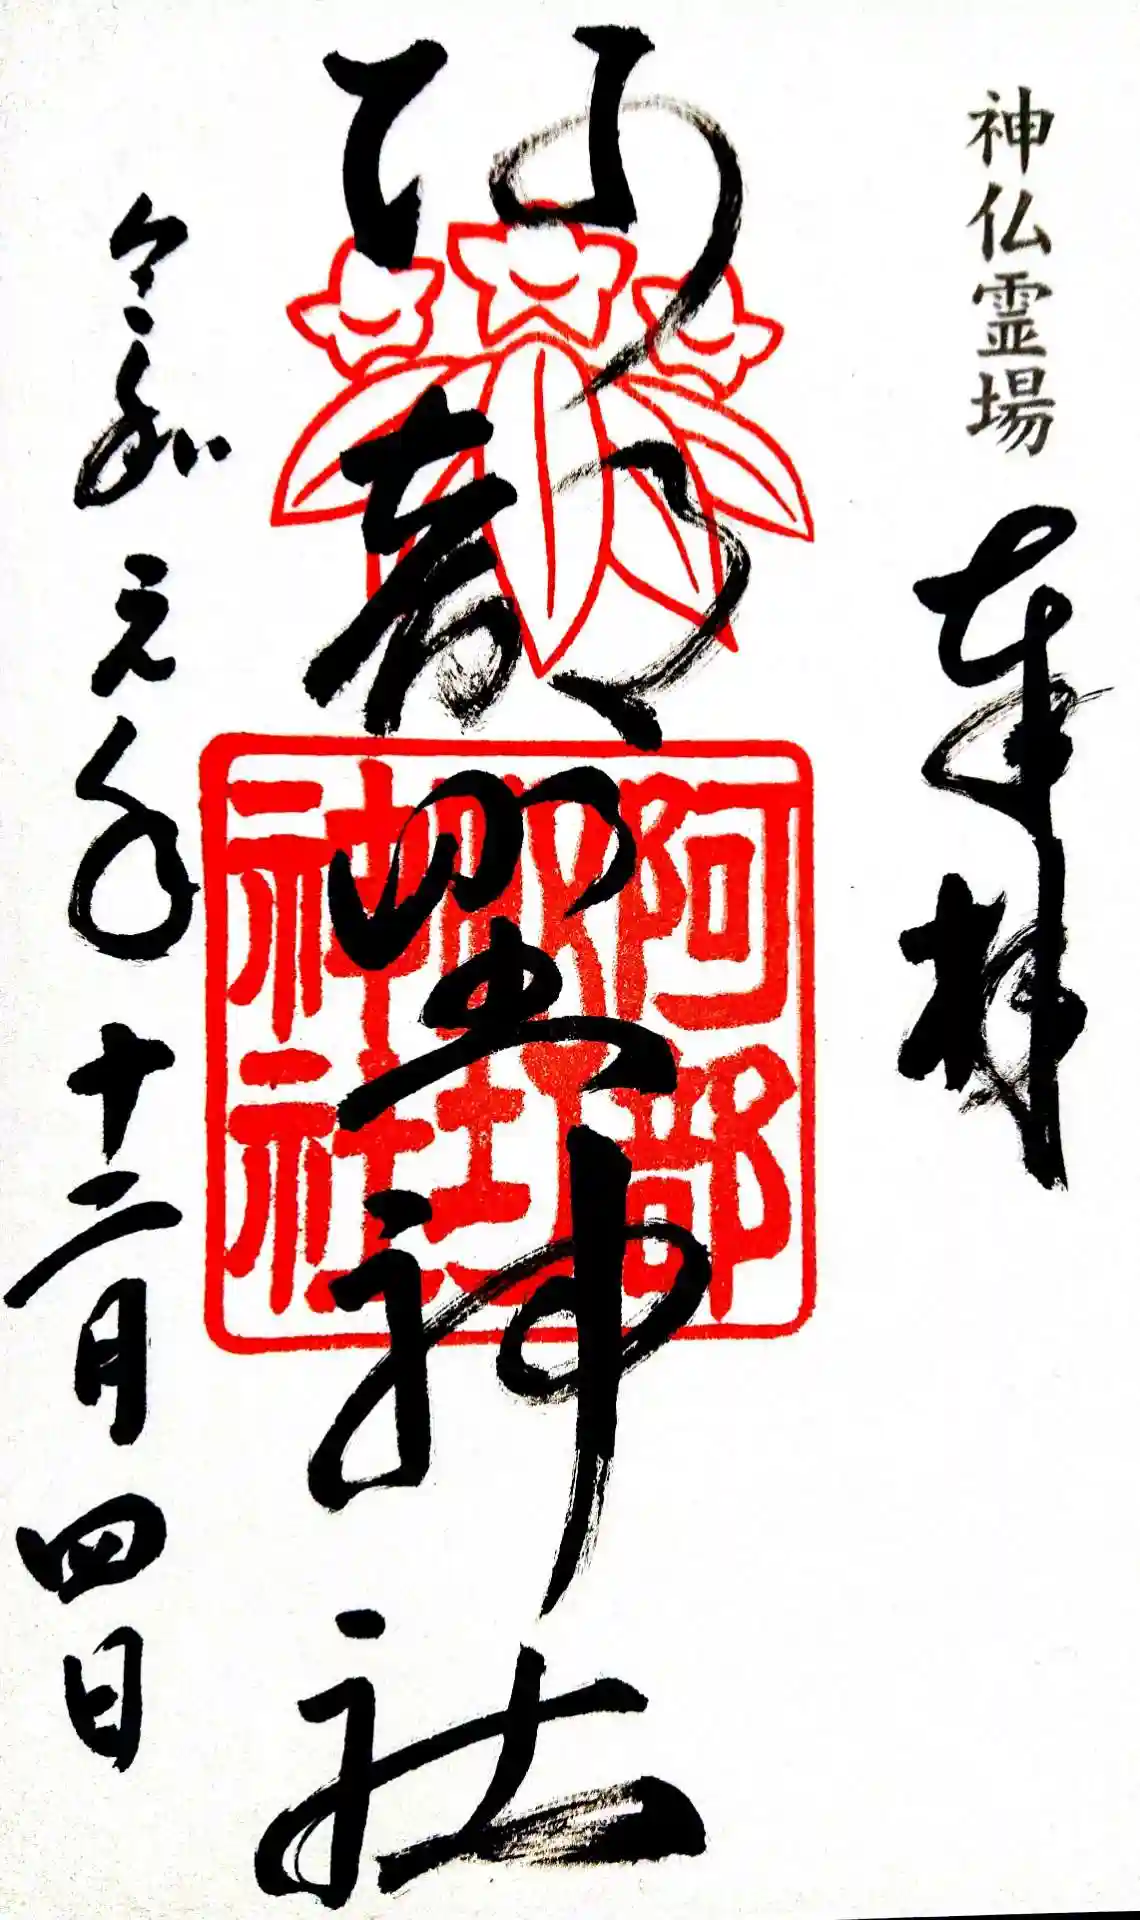 神仏霊場
奉拝
阿部野神社
阿部
野
神社
令和元年十二月四日